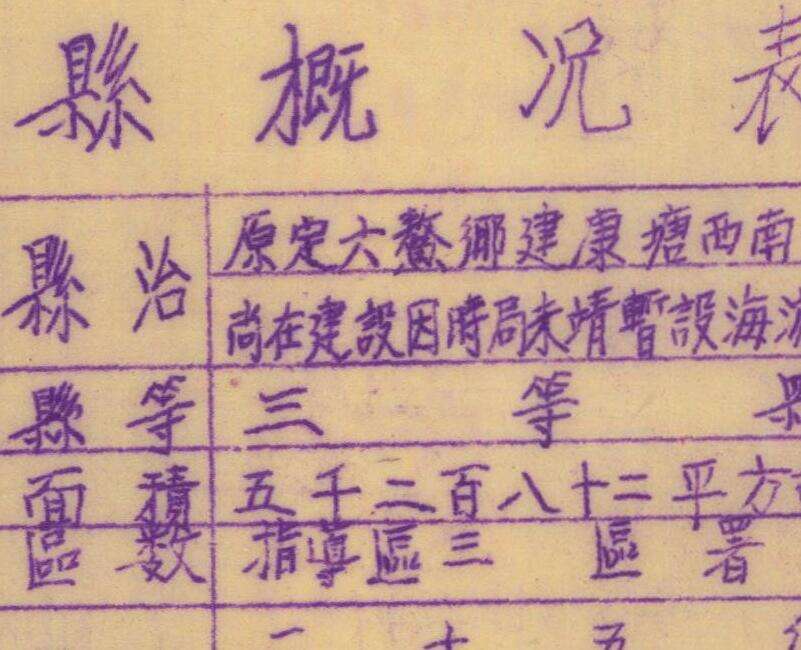 縣概況表
縣治 原定六鰲鄉建康塘西南
尚在建設因時局未靖暫設海
縣等 三等縣
面積 五千二百八十二平方
區數 指導區三 區署
一 十 五